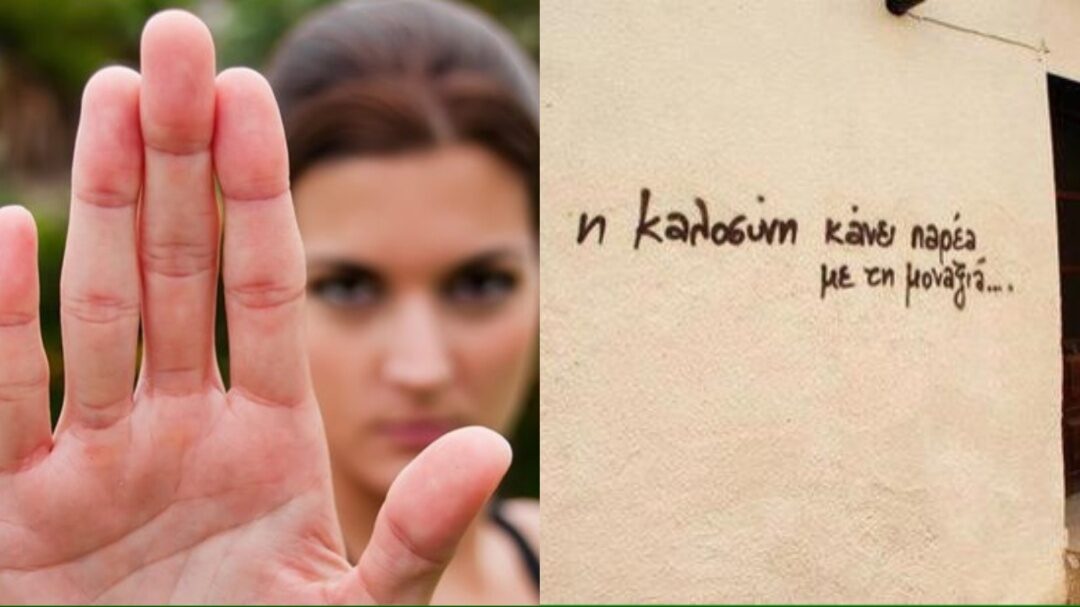 η καλοσύνη κάνει παρέα
με τη μοναξιά....